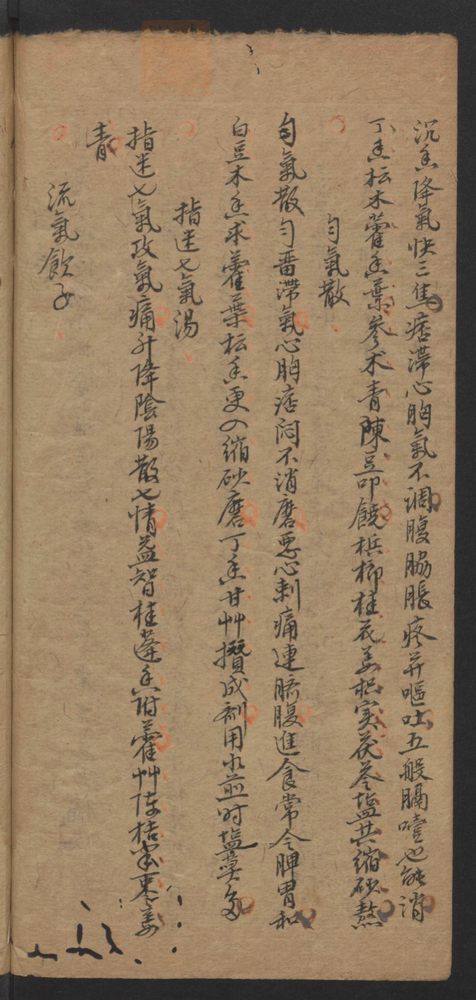 沉香降氣快三焦痞滯心胸氣不調腹脇脹疼并嘔吐五般膈噎也能消
丁香枟木藿香葉參术青陳豆叩饒梹榔桂花姜枳实茯苓塩共縮砂熬
勻氣散
勻氣散勻畨滯氣心胸痞闷不消磨惡心刺痛連臍腹進食常令脾胃和
白豆木香求藿葉枟香更入縮砂磨丁香甘艸攢成劑用水煎时塩莫多
指迷七氣湯
指迷七氣攻氣痛升降陰陽散七情益智桂蓬香附藿艸陈桔半枣姜
青
流氣飲子